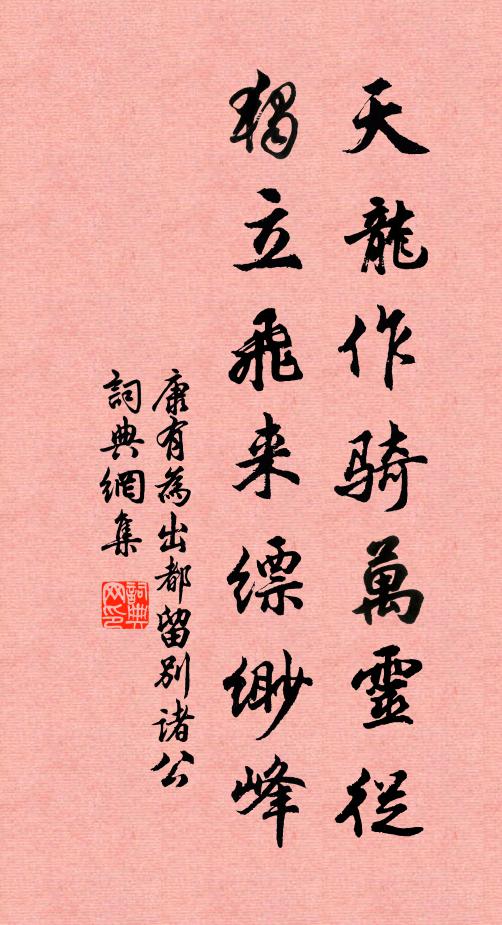 天龍作騎萬靈從
獨立飛来缥緲峰
康有為出都留別諸公
詞典網集
詞典网印